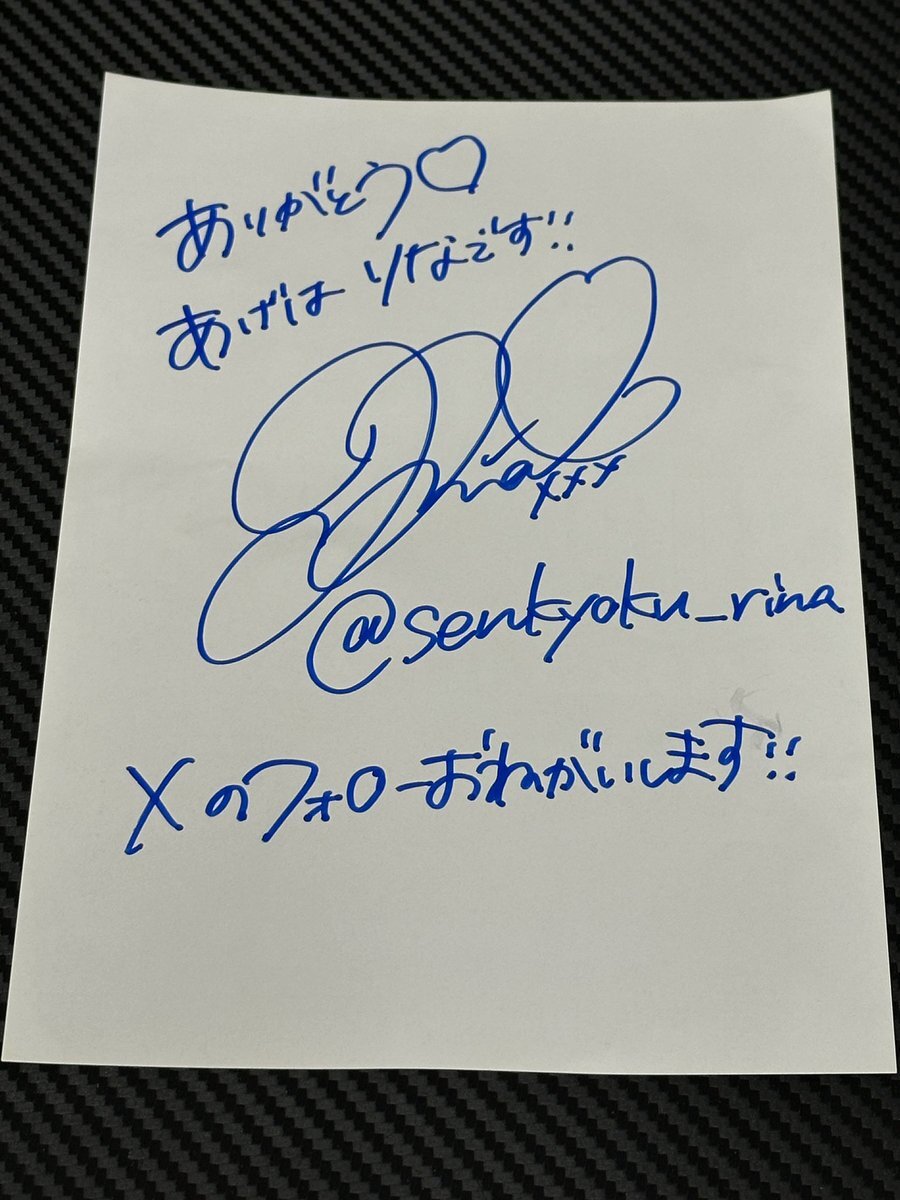 ありがとう♡
あげは りなです!!
Rina xxx
@senkyoku_rina
Xのフォローおねがいします!!